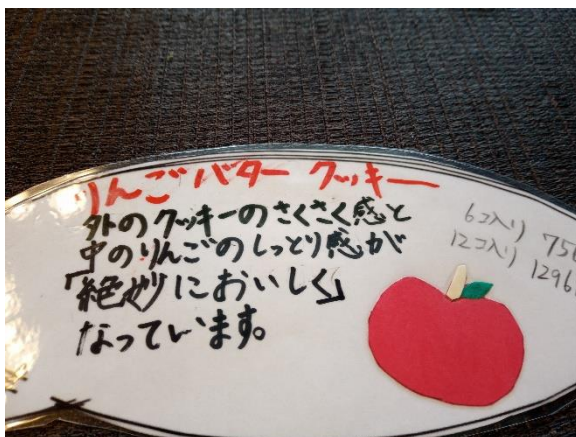 りんごバター クッキー
外のクッキーのさくさく感と
中のりんごのしっとり感が
「絶妙においしく」
なっています。
6コ入り 756
12コ入り 1296